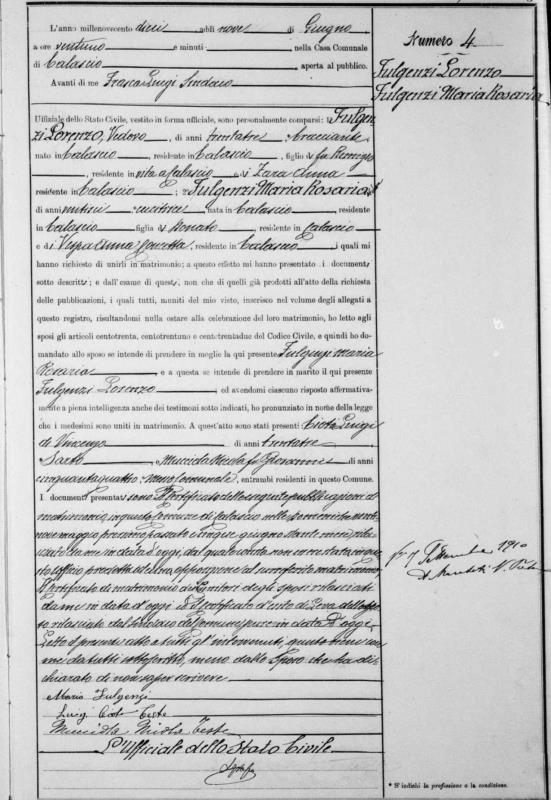 L'anno millenovecento dieci addì nove di Giugno
a ore ventuno e minuti nella Casa Comunale
di Calascio aperta al pubblico.
Avanti di me Frasca Luigi Sindaco
Numero 4
Fulgenzi Lorenzo
Fulgenzi Maria Rosaria
Uffiziale dello Stato Civile, vestito in forma ufficiale, sono personalmente comparsi: 1° Fulgen
zi Lorenzo, Vedovo, di anni trentatre Bracciante
nato in Calascio, residente in Calascio, figlio di fu
, residente in vita a Calascio e di Zara Anna
residente in Calascio; 2° Fulgenzi Maria Rosaria
di anni cucitrice nata in Calascio, residente
in Calascio figlia di Donato, residente in Calascio
e di Vespa Anna residente in Calascio i quali mi
hanno richiesto di unirli in matrimonio; a questo effetto mi hanno presentato i documenti
sotto descritti; e dall'esame di questi, non che di quelli già prodotti all'atto della richiesta
delle pubblicazioni, i quali tutti, muniti del mio visto, inserisco nel volume degli allegati a
questo registro, risultandomi nulla ostare alla celebrazione del loro matrimonio, ho letto agli
sposi gli articoli centotrenta, centotrentuno e centotrentadue del Codice Civile, e quindi ho do-
mandato allo sposo se intende di prendere in moglie la qui presente Fulgenzi Maria
Rosaria e a questa se intende di prendere in marito il qui presente
Fulgenzi Lorenzo ed avendomi ciascuno risposto affermativa-
mente a piena intelligenza anche dei testimoni sotto indicati, ho pronunziato in nome della legge
che i medesimi sono uniti in matrimonio. A quest'atto sono stati presenti: Ciota Luigi
di Vincenzo di anni trentatre
Sarto e Muscida Nicola fu Giovanni di anni
cinquantaquattro Messo Comunale, entrambi residenti in questo Comune.
I documenti presentati sono il Certificato delle eseguite pubblicazioni di
matrimonio, in questo Comune di Calascio nelle Domeniche venti
nove maggio prossimo passato e cinque giugno stante mese, rila
sciato da me in data d'oggi, dal quale
opposizione al matrimonio
Certificato di matrimonio dei Genitori degli sposi rilasciati
da me in data d'oggi il Certificato d'esito di Leva dello sposo
rilasciato dal Sindaco del Comune pure in data d'oggi
Letto il presente atto a tutti gl'intervenuti, questo viene con
me da tutti sottoscritto, meno dallo Sposo che ha di
chiarato di non saper scrivere
Maria Fulgenzi
Luigi Teste
Muscida Nicola Teste
L'Uffiziale dello Stato Civile
7 Settembre 1910
* S' indichi la professione o la condizione.